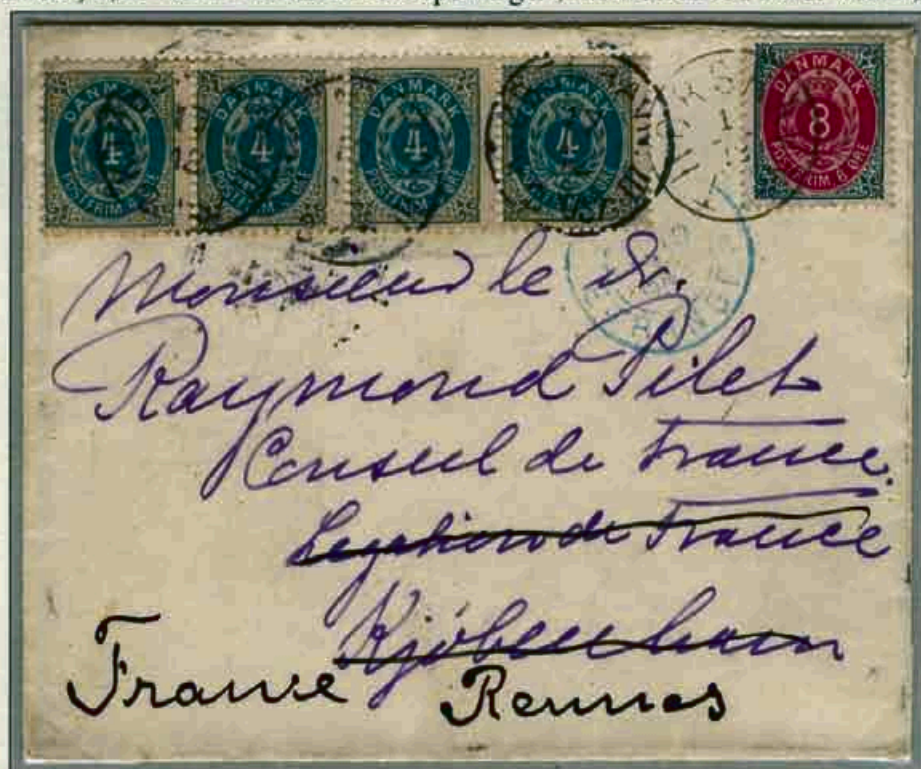 DANMARK 4 POSTFRIM. ØRE
DANMARK 4 POSTFRIM. ØRE
DANMARK 4 POSTFRIM. ØRE
DANMARK 4
DANMARK 8 POSTFRIM. 8 ØRE
Monsieur le Dr.
Raymond Pilet
Consul de France
Legation de France
Kjöbenhavn
France Rennes